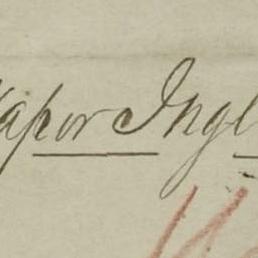 Vapor Ingl